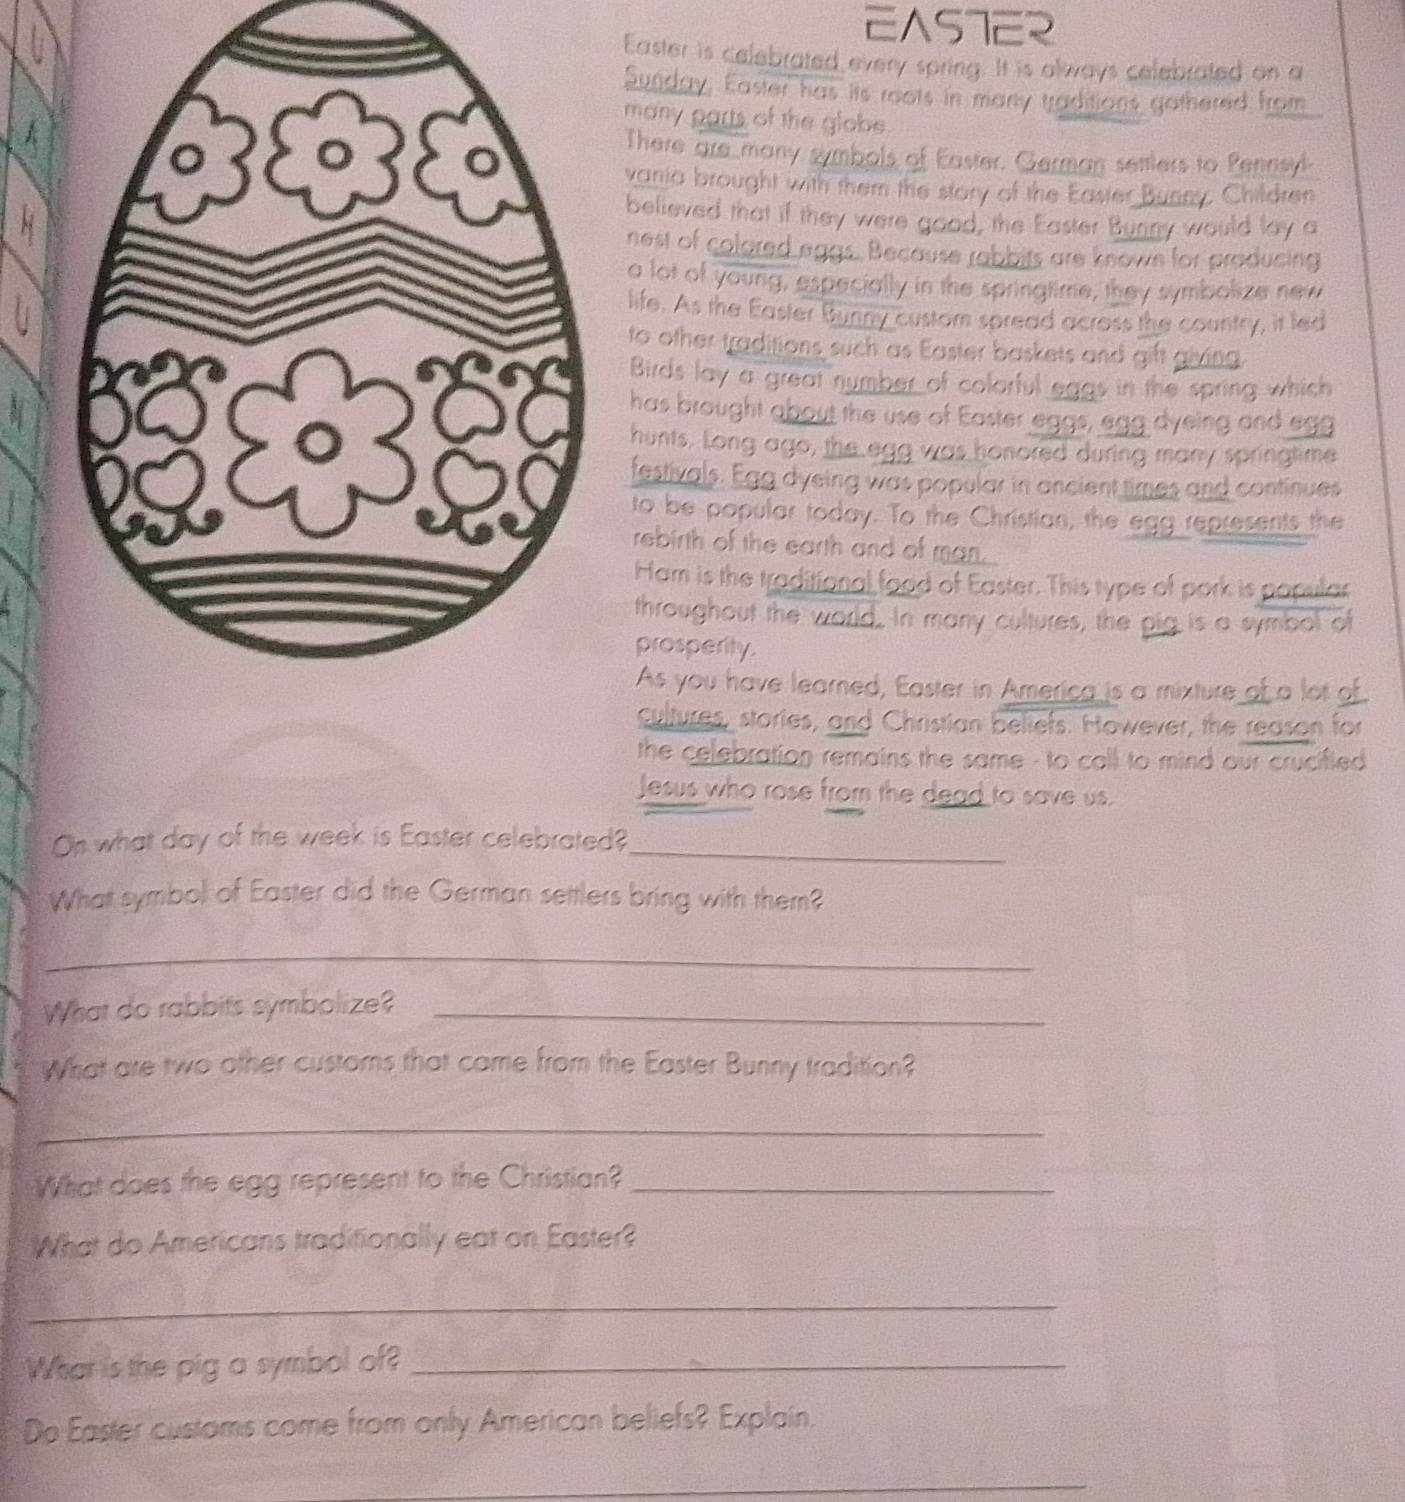 EASTER
Easter is celebrated every spring. It is always celebrated on a
Sunday. Easter has its roots in many traditions gathered from
many parts of the globe.
There are many symbols of Easter. German settlers to Pennsyl-
vania brought with them the story of the Easter Bunny. Children
believed that if they were good, the Easter Bunny would lay a
nest of colored eggs. Because rabbits are known for producing
a lot of young, especially in the springtime, they symbolize new
life. As the Easter Bunny custom spread across the country, it led
to other traditions such as Easter baskets and gift giving.
Birds lay a great number of colorful eggs in the spring which
has brought about the use of Easter eggs, egg dyeing and egg
hunts. Long ago, the egg was honored during many springtime
festivals. Egg dyeing was popular in ancient times and continues
to be popular today. To the Christian, the egg represents the
rebirth of the earth and of man.
Ham is the traditional food of Easter. This type of pork is popular
throughout the world. In many cultures, the pig is a symbol of
prosperity.
As you have learned, Easter in America is a mixture of a lot of
cultures, stories, and Christian beliefs. However, the reason for
the celebration remains the same - to call to mind our crucified
Jesus who rose from the dead to save us.
On what day of the week is Easter celebrated?
What symbol of Easter did the German settlers bring with them?
What do rabbits symbolize?
What are two other customs that came from the Easter Bunny tradition?
What does the egg represent to the Christian?
What do Americans traditionally eat on Easter?
What is the pig a symbol of?
Do Easter customs come from only American beliefs? Explain.
U
A
H
U
N
I